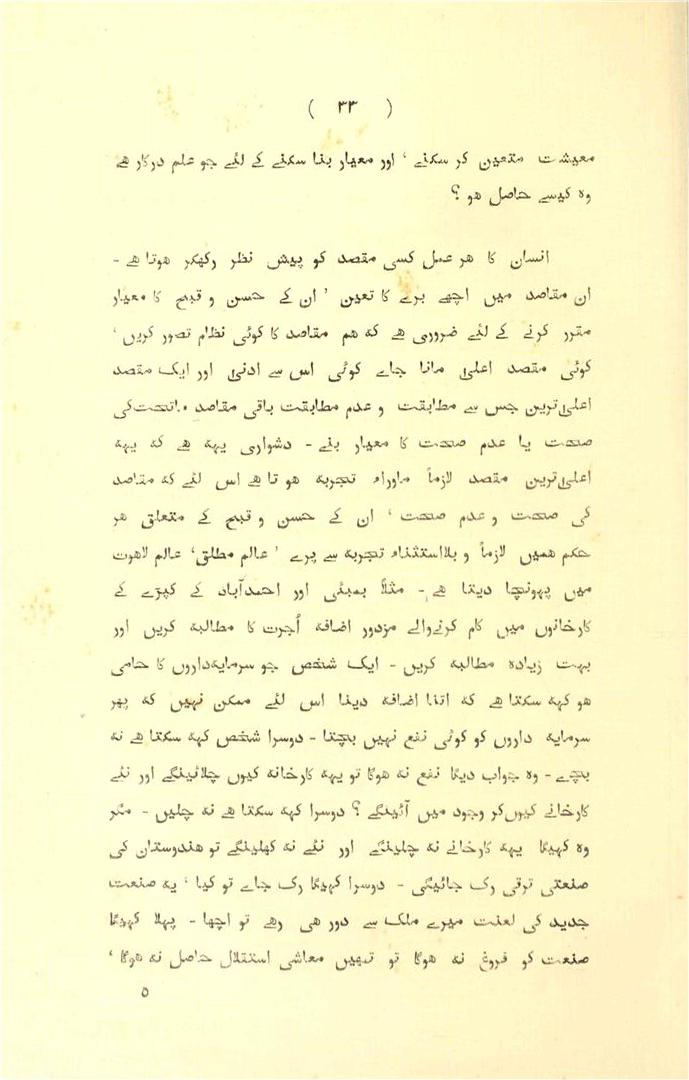 ( ۳۳ )
معیشت متعین کر سکنے ، اور معیار بنا سکنے کے لئے جو علم درکار ہے
وہ کیسے حاصل ہو ؟
انسان کا ہر عمل کسی مقصد کو پیش نظر رکھکر ہوتا ہے -
ان مقاصد میں اچھے برے کا تعین ، ان کے حسن و قبح کا معیار
مقرر کرنے کے لئے ضروری ہے کہ ہم مقاصد کا کوئی نظام تصور کریں ،
کوئی مقصد اعلیٰ مانا جاے کوئی اس سے ادنیٰ اور ایک مقصد
اعلیٰ ترین جس سے مطابقت و عدم مطابقت باقی مقاصد ماتحت کی
صحت یا عدم صحت کا معیار بنے - دشواری یہہ ہے کہ یہہ
اعلیٰ ترین مقصد لازماً ماوراء تجربہ ہوتا ہے اس لئے کہ مقاصد
کی صحت و عدم صحت ، ان کے حسن و قبح کے متعلق ہر
حکم ہمیں لازماً و بلااستثناء تجربہ سے پرے ، عالم مطلق، عالم لاہوت
میں پہونچا دیتا ہے - مثلاً بمبئی اور احمدآباد کے کپڑے کے
کارخانوں میں کام کرنے والے مزدور اضافہ اُجرت کا مطالبہ کریں اور
بہت زیادہ مطالبہ کریں - ایک شخص جو سرمایہ داروں کا حامی
ہو کہہ سکتا ہے کہ اتنا اضافہ دینا اس لئے ممکن نہیں کہ پھر
سرمایہ داروں کو کوئی نفع نہیں بچتا - دوسرا شخص کہہ سکتا ہے نہ
بچے - وہ جواب دیگا نفع نہ ہوگا تو یہہ کارخانہ کیوں چلائینگے اور نئے
کارخانے کیوں کر وجود میں آئینگے ؟ دوسرا کہہ سکتا ہے نہ چلیں - مگر
وہ کہیگا یہہ کارخانے نہ چلینگے اور نئے نہ کھلینگے تو ہندوستان کی
صنعتی ترقی رک جائیگی - دوسرا کہیگا رک جاے تو کیا ، یہ صنعت
جدید کی لعنت میرے ملک سے دور ہی رہے تو اچھا - پہلا کہیگا
صنعت کو فروغ نہ ہوگا تو تمہیں معاشی استقلال حاصل نہ ہوگا ،
۵